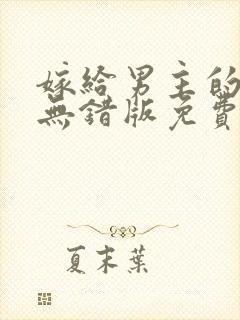 嫁給男主的
無錯版免費
夏末葉